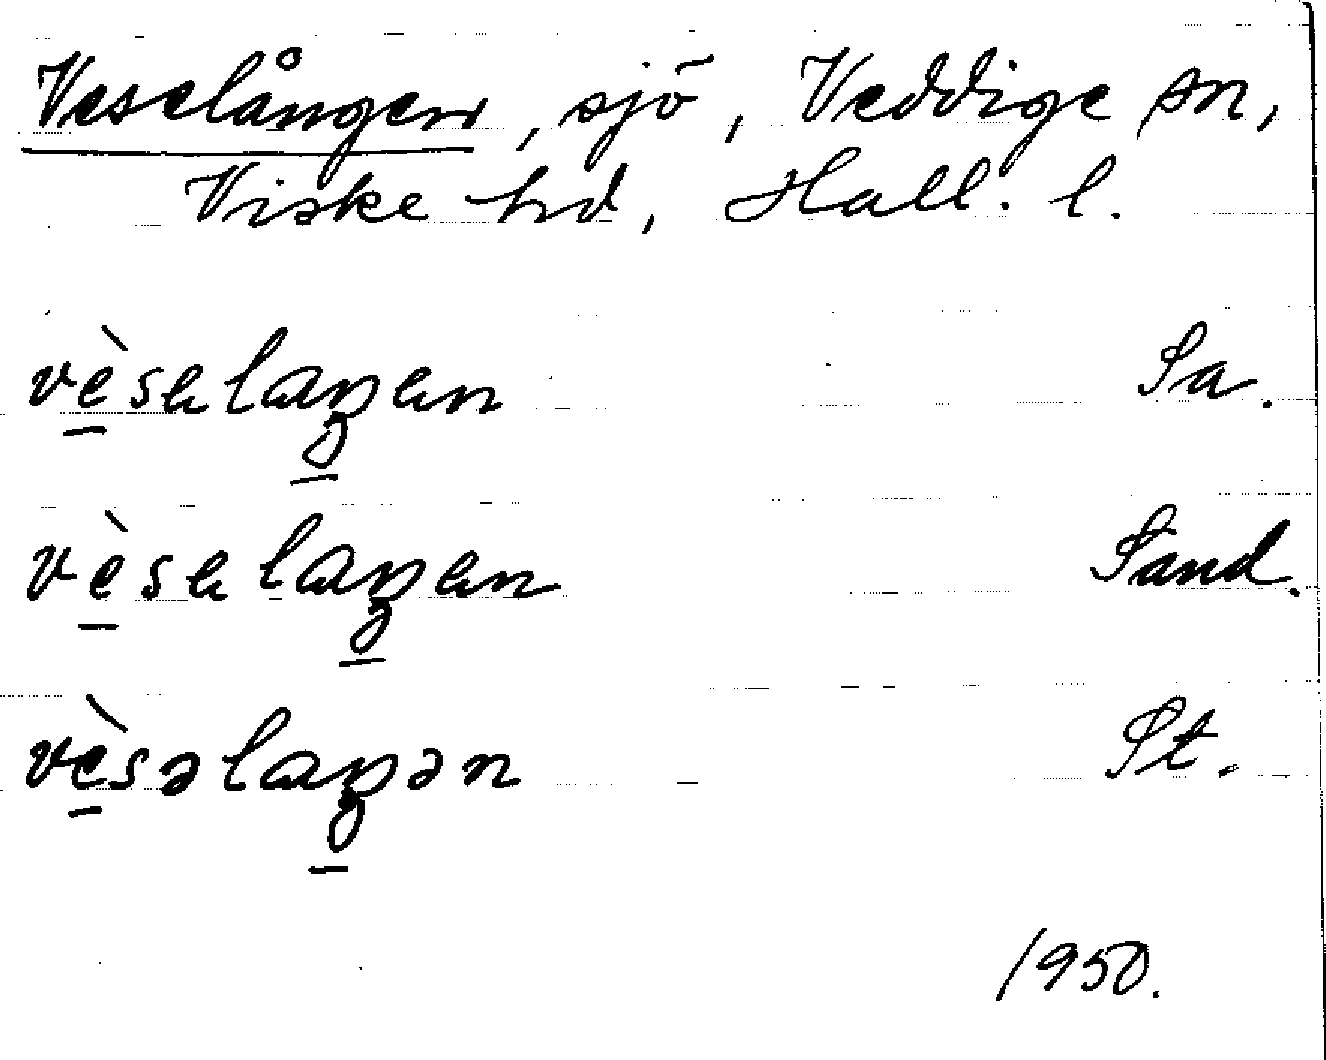 Veselången, sjö, Veddige sn,
Viske hd, Hall. l.
vèselaŋen Sa.
vèselaŋen Sand.
vèsəlaŋən St.
1950.